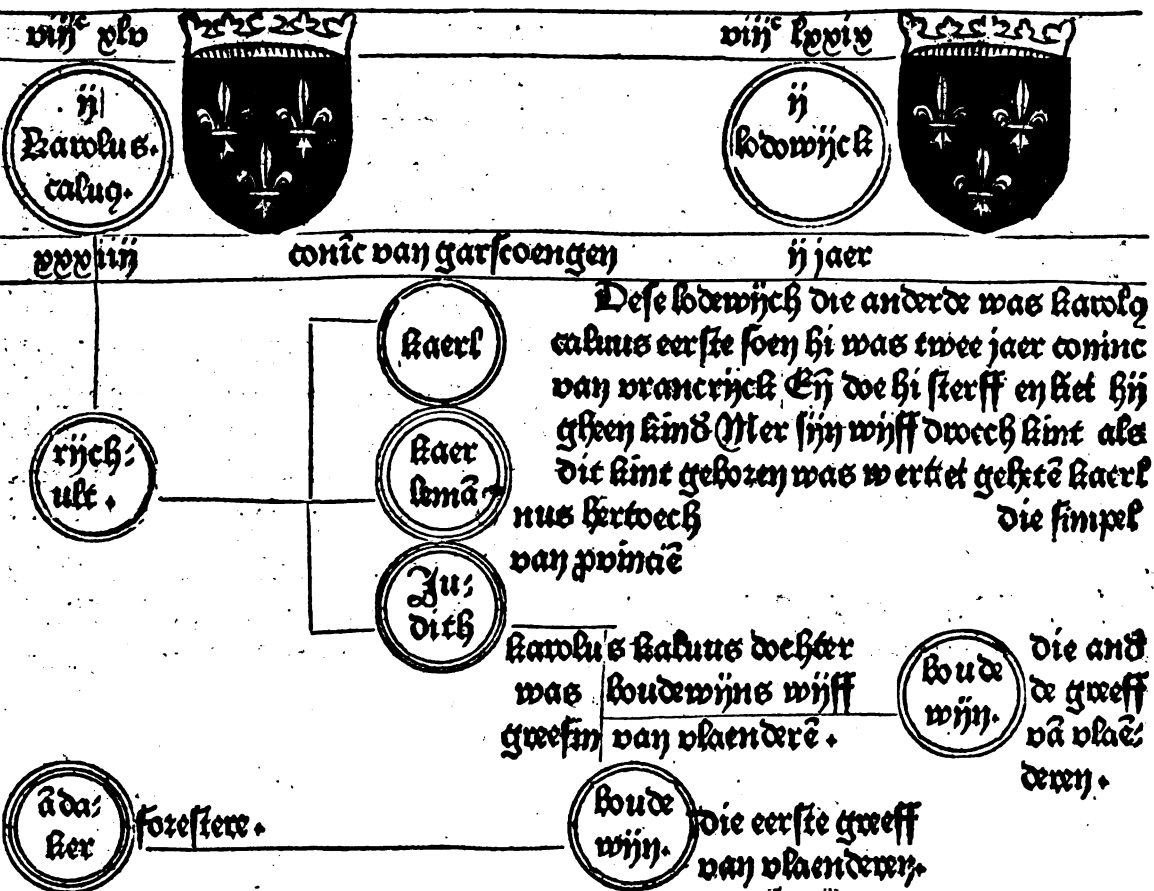 viijᶜ xlv
viijᶜ lxxix
ij
Karolus.
caluꝯ.
ij
lodowijck
xxxiiij
conīc van garscoengen
ij jaer
kaerl
Dese lodewijch die anderde was karolꝯ
caluus eerste soen hi was twee jaer coninc
van vrancrijck Eñ doe hi sterff en liet hij
gheen kind Mer sijn wijff droech kint als
dit kint geboren was wertet gehetē kaerl
die simpel
rijch⸗
ult.
kaer
lemā
nus hertoech
van ꝓvinciē
Ju⸗
dith
karolus kaluus dochter
was boudewijns wijff
greefin van vlaenderē.
boude
wijn.
die and
de greeff
vā vlaē⸗
deren.
āda⸗
ker
forestere.
boude
wijn.
die eerste greeff
van vlaenderen.